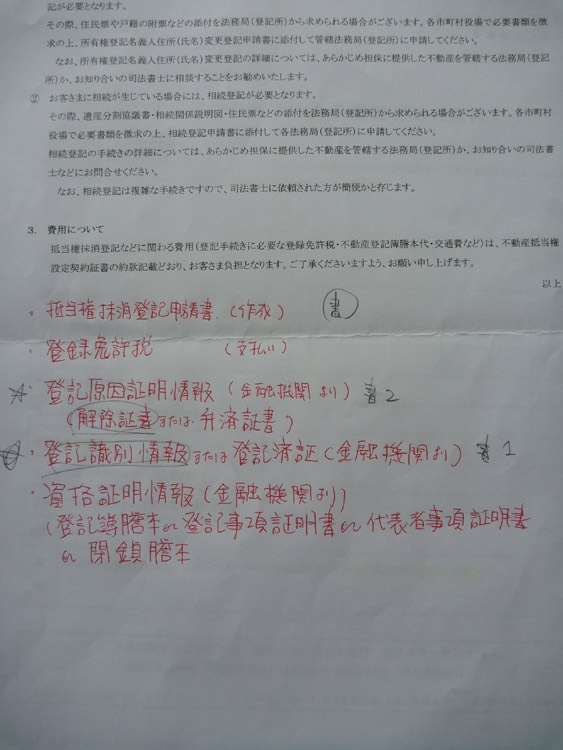 記が必要となります。
その際、住民票や戸籍の附票などの添付を法務局(登記所)から求められる場合がございます。各市町村役場で必要書類を徴
求の上、所有権登記名義人住所(氏名)変更登記申請書に添付して管轄法務局(登記所)に申請してください。
なお、所有権登記名義人住所(氏名)変更登記の詳細については、あらかじめ担保に提供した不動産を管轄する法務局(登記
所)か、お知り合いの司法書士に相談することをお勧めいたします。
② お客さまに相続が生じている場合には、相続登記が必要となります。
その際、遺産分割協議書・相続関係説明図・住民票などの添付を法務局(登記所)から求められる場合がございます。各市町村
役場で必要書類を徴求の上、相続登記申請書に添付して各法務局(登記所)に申請してください。
相続登記の手続きの詳細については、あらかじめ担保に提供した不動産を管轄する法務局(登記所)か、お知り合いの司法書
士などにお問合せください。
なお、相続登記は複雑な手続きですので、司法書士に依頼された方が簡便かと存じます。
3. 費用について
抵当権抹消登記などに関わる費用(登記手続きに必要な登録免許税・不動産登記簿謄本代・交通費など)は、不動産抵当権
設定契約証書の約款記載どおり、お客さま負担となります。ご了承くださいますよう、お願い申し上げます。
以上
・抵当権抹消登記申請書 (作成) 書
・登録免許税 (支払い)
☆・登記原因証明情報 (金融機関より) 書2
(解除証書 または 弁済証書)
・登記識別情報 または 登記済証 (金融機関より) 書1
・資格証明情報 (金融機関より)
(登記簿謄本 or 登記事項証明書 or 代表者事項証明書
or 閉鎖謄本